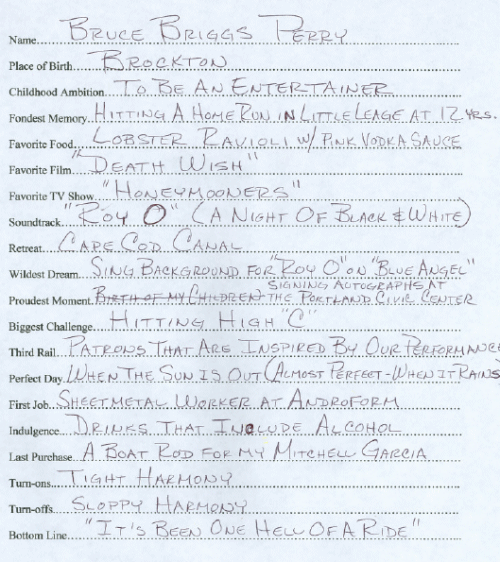 Name....BRUCE BRIGGS PERRY
Place of Birth....BROCKTON
Childhood Ambition....TO BE AN ENTERTAINER
Fondest Memory...HITTING A HOME RUN IN LITTLE LEAGE AT 12 YRS.
Favorite Food....LOBSTER RAVIOLI W/ PINK VODKA SAUCE
Favorite Film...."DEATH WISH"
Favorite TV Show...."HONEYMOONERS"
Soundtrack...."ROY O" (A NIGHT OF BLACK & WHITE)
Retreat....CAPE COD CANAL
Wildest Dream....SING BACKGROUND FOR "ROY O" ON "BLUE ANGEL"
SIGNING AUTOGRAPHS AT
Proudest Moment...BIRTH OF MY CHILDREN THE PORTLAND CIVIC CENTER
Biggest Challenge....HITTING HIGH "C"
Third Rail....PATRONS THAT ARE INSPIRED BY OUR PERFORMANCE
Perfect Day...WHEN THE SUN IS OUT (ALMOST PERFECT - WHEN IT RAINS
First Job....SHEETMETAL WORKER AT ANDROFORM
Indulgence....DRINKS THAT INCLUDE ALCOHOL
Last Purchase....A BOAT ROD FOR MY MITCHELL GARCIA
Turn-ons....TIGHT HARMONY
Turn-offs....SLOPPY HARMONY
Bottom Line...."IT'S BEEN ONE HELL OF A RIDE"